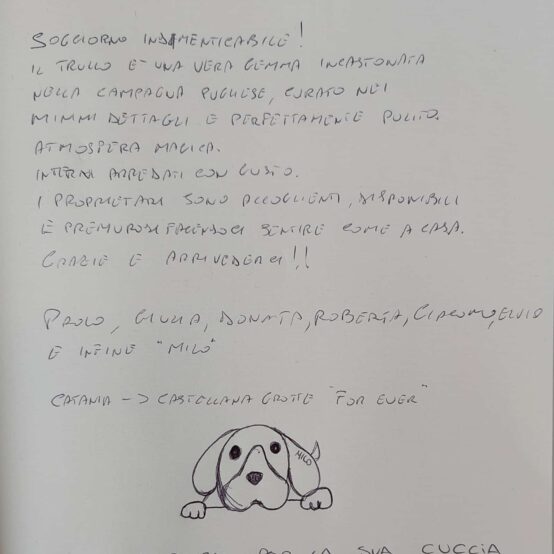 SOGGIORNO INDIMENTICABILE!
IL TRULLO E' UNA VERA GEMMA INCASTONATA
NELLA CAMPAGNA PUGLIESE, CURATO NEI
MINIMI DETTAGLI E PERFETTAMENTE PULITO.
ATMOSFERA MAGICA.
INTERNI ARREDATI CON GUSTO.
I PROPRIETARI SONO ACCOGLIENTI, DISPONIBILI
E PREMUROSI FACENDOCI SENTIRE COME A CASA.
GRAZIE E ARRIVEDERCI!!
PAOLO, GIULIA, DONATA, ROBERTA, GIACOMO, ELVIO
E INFINE "MILO"
CATANIA -> CASTELLANA GROTTE "FOR EVER"
MILO
PER LA SUA CUCCIA